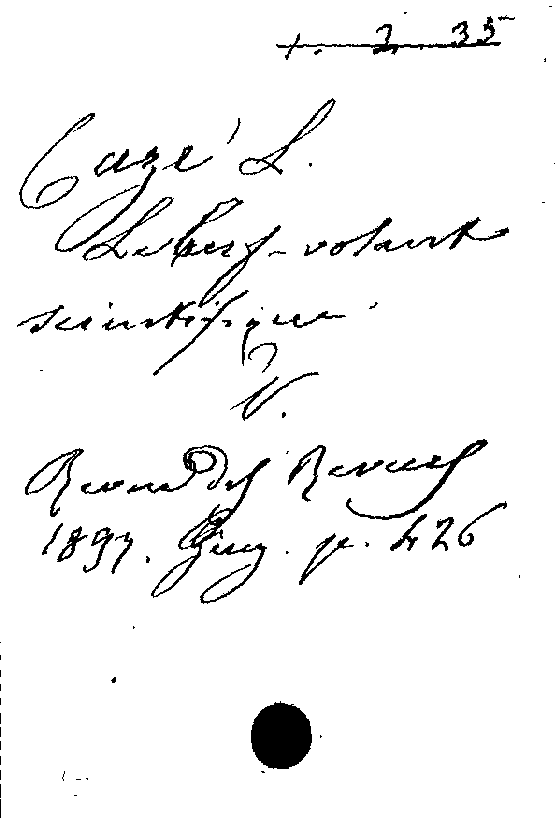 +. 2. 35
Cazé L.
Le Cerf-volant
scientifique.
V.
Revue des Revues
1897. p. 426